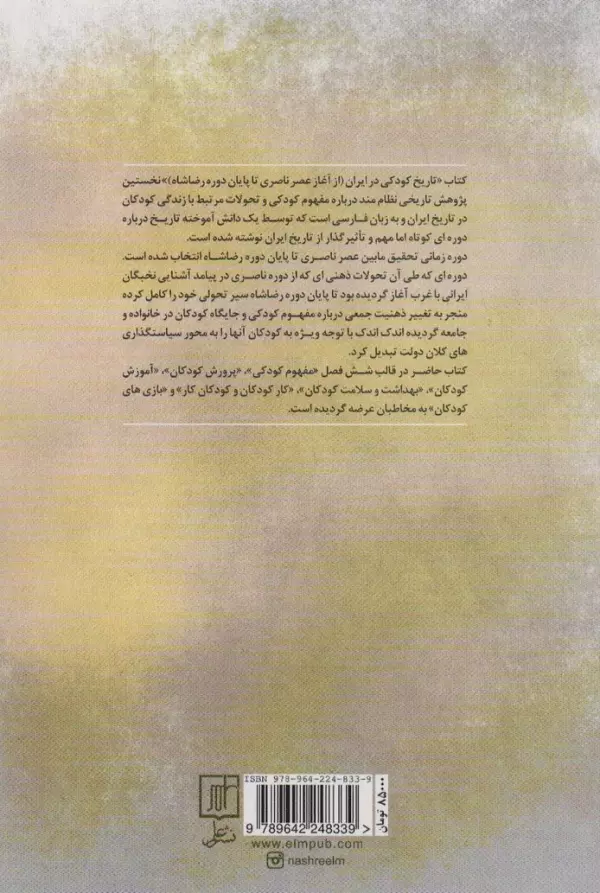 کتاب «تاریخ کودکی در ایران (از آغاز عصر ناصری تا پایان دوره رضاشاه)» نخستین
پژوهش تاریخی نظام مند درباره مفهوم کودکی و تحولات مرتبط با زندگی کودکان
در تاریخ ایران و به زبان فارسی است که توسط یک دانش آموخته تاریخ درباره
دوره ای کوتاه اما مهم و تأثیرگذار از تاریخ ایران نوشته شده است.
دوره زمانی تحقیق مابین عصر ناصری تا پایان دوره رضاشاه انتخاب شده است.
دوره ای که طی آن تحولات ذهنی ای که از دوره ناصری در پیامد آشنایی نخبگان
ایرانی با غرب آغاز گردیده بود تا پایان دوره رضاشاه سیر تحولی خود را کامل کرده
منجر به تغییر ذهنیت جمعی درباره مفهوم کودکی و جایگاه کودکان در خانواده و
جامعه گردیده اندک اندک با توجه ویژه به کودکان آنها را به محور سیاستگذاری
های کلان دولت تبدیل کرد.
کتاب حاضر در قالب شش فصل «مفهوم کودکی»، «پرورش کودکان»، «آموزش
کودکان»، «بهداشت و سلامت کودکان»، «کار کودکان و کودکان کار» و «بازی های
کودکان» به مخاطبان عرضه گردیده است.
ISBN 978-964-224-833-9
9 789642 248339 >
۸۵۰۰۰ تومان
نشر علم
www.elmpub.com
nashreelm